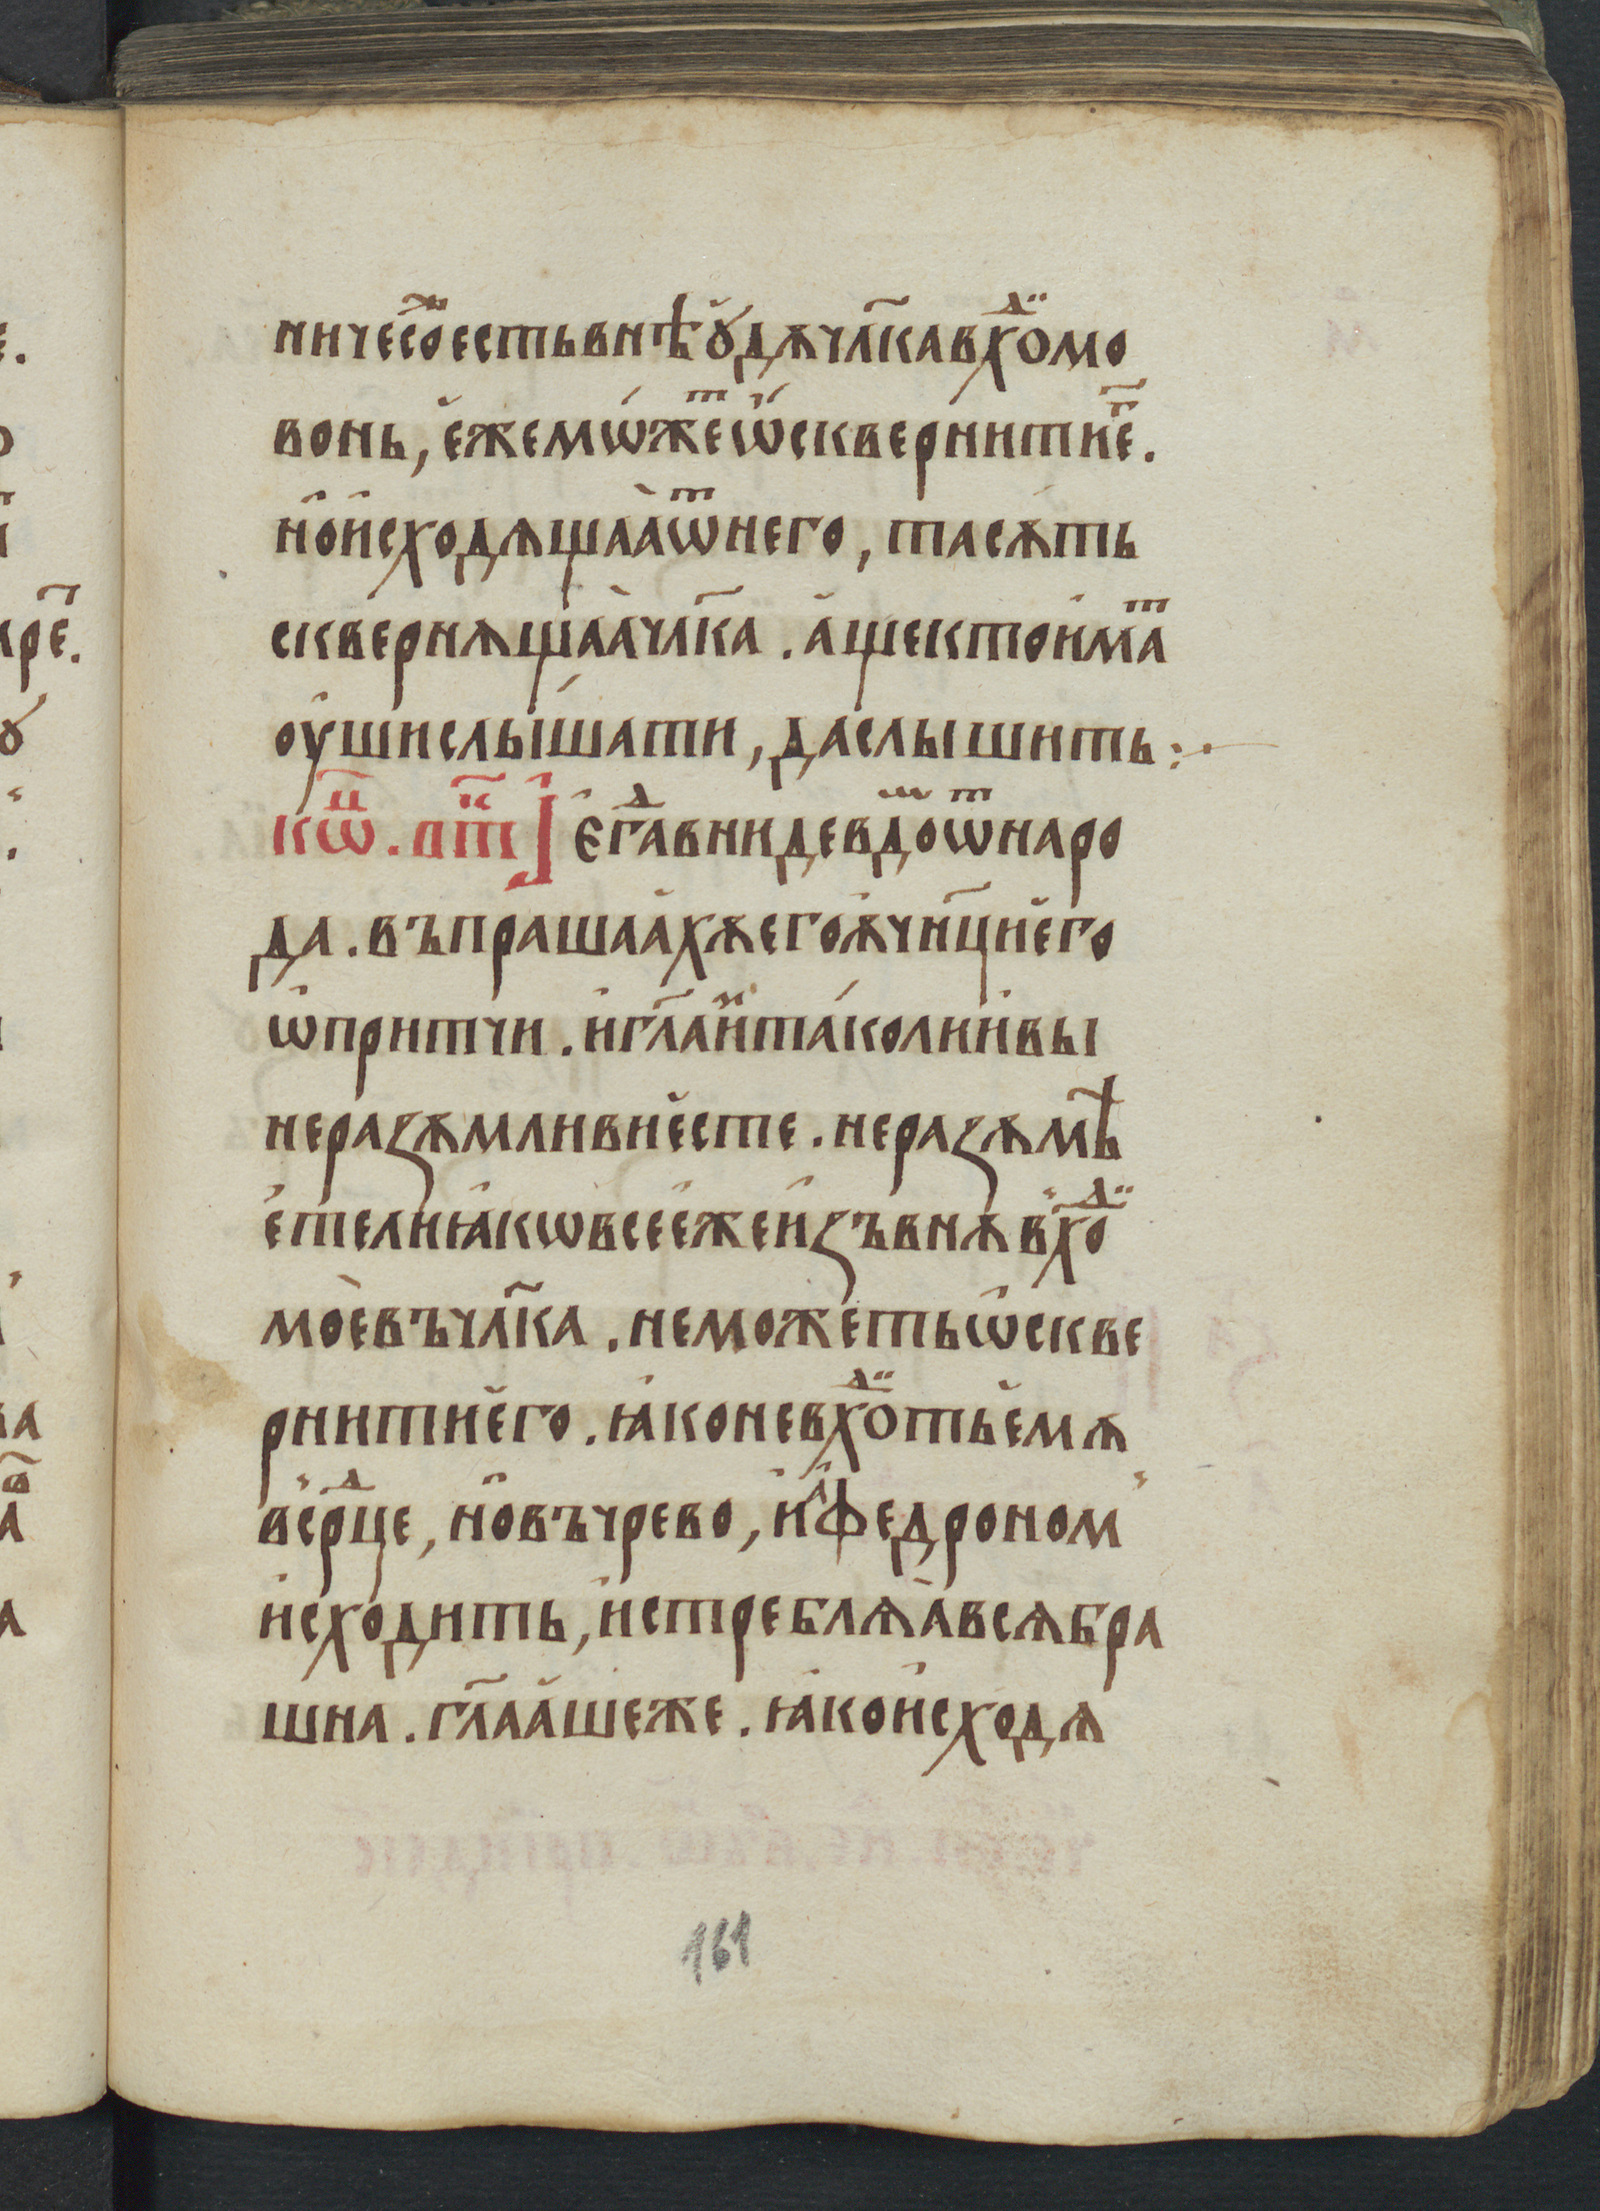 ничесо́ⷤ есть внѣꙋ́дꙋ чл҃ка вхⷪ҇дⷶ҇омо
вонь, е҆же мѡ́жеⷮ ѡ҆скверни́ти еⷢ҇.
но̑ и҆сходѧщаа̀ ѿ него, та сѫ́ть
скве́рнѧщаа҆ чл҃ка. а҆ще кто и҆маⷮ
оу҆ши слы́шати, да слышить :·
кѡⷩ҇ц. пⷦ҇тк] є҆гⷣа вниде в доⷨ ѿ наро
да. въпрашаа҆хѫ его ѹ҆чн҃ци е҆го
ѡ҆ притчи. и҆ гл҃а и҆ⷨ та́ко ли и҆ вы
неразѹмливи е҆сте. не разѹмѣ
е҆те ли ꙗ҆кѡ все е҆же и҆зъвнѹ вхⷪⷣ
мо̀е въ чл҃ка. не може́ть ѡ҆скве
рнити е҆го. ꙗ҆ко не вхⷪⷣоть е҆мѹ
в срⷣце, но̑ въ чрево, и҆ а҆федроном
и҆сходить, и҆стреблѧа̀ всѧ бра
шна. гл҃аа҆ше же. ꙗ҆ко и҆сходѧ
161